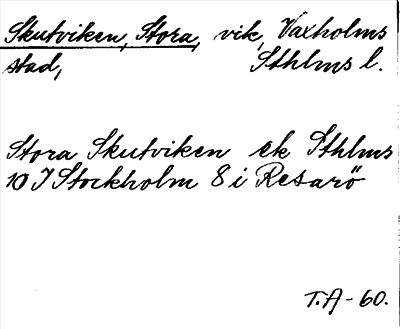 Skutviken, Stora, vik, Vaxholms
stad, Sthlms l.
Stora Skutviken ek Sthlms
10 J Stockholm 8 i Resarö
T.A-60.